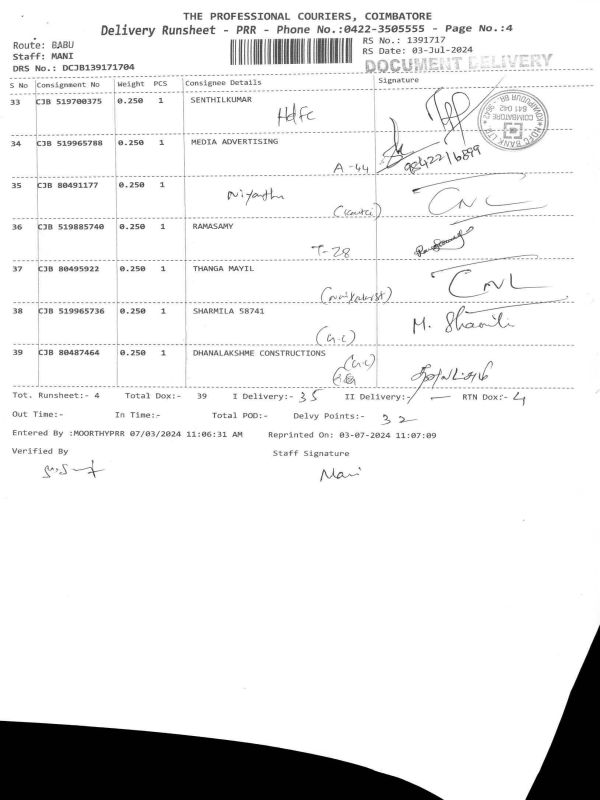 THE PROFESSIONAL COURIERS, COIMBATORE
Delivery Runsheet - PRR - Phone No.:0422-3505555 - Page No.:4
Route: BABU
RS No.: 1391717
Staff: MANI
RS Date: 03-Jul-2024
DRS No.: DCJB139171704
DOCUMENT DELIVERY
S No Consignment No Weight PCS Consignee Details Signature
33 CJB 519700375 0.250 1 SENTHILKUMAR
Hdfc
HDFC BANK LTD
COIMBATORE
641 042
34 CJB 519965788 0.250 1 MEDIA ADVERTISING
A-44
9842216899
35 CJB 80491177 0.250 1
36 CJB 519885740 0.250 1 RAMASAMY
T-28
37 CJB 80495922 0.250 1 THANGA MAYIL
38 CJB 519965736 0.250 1 SHARMILA 58741
(G-C)
39 CJB 80487464 0.250 1 DHANALAKSHME CONSTRUCTIONS
(G-C)
Tot. Runsheet:- 4 Total Dox:- 39 I Delivery:- 35 II Delivery:- — RTN Dox:- 4
Out Time:- In Time:- Total POD:- Delvy Points:- 32
Entered By :MOORTHYPRR 07/03/2024 11:06:31 AM Reprinted On: 03-07-2024 11:07:09
Verified By Staff Signature
Mani